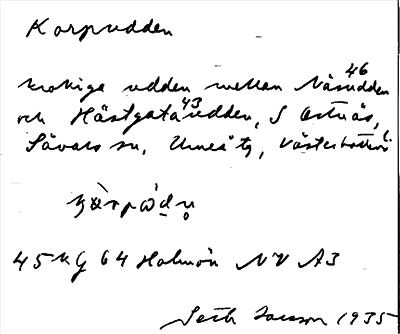 Korpudden
46
krokiga udden mellan Näsudden
43
och Hästgatuudden, S Ostnäs,
Sävars sn, Umeå tg, Västerbottens l.
45 kg 64 Holmön NV A3
Seth Jansson 1935